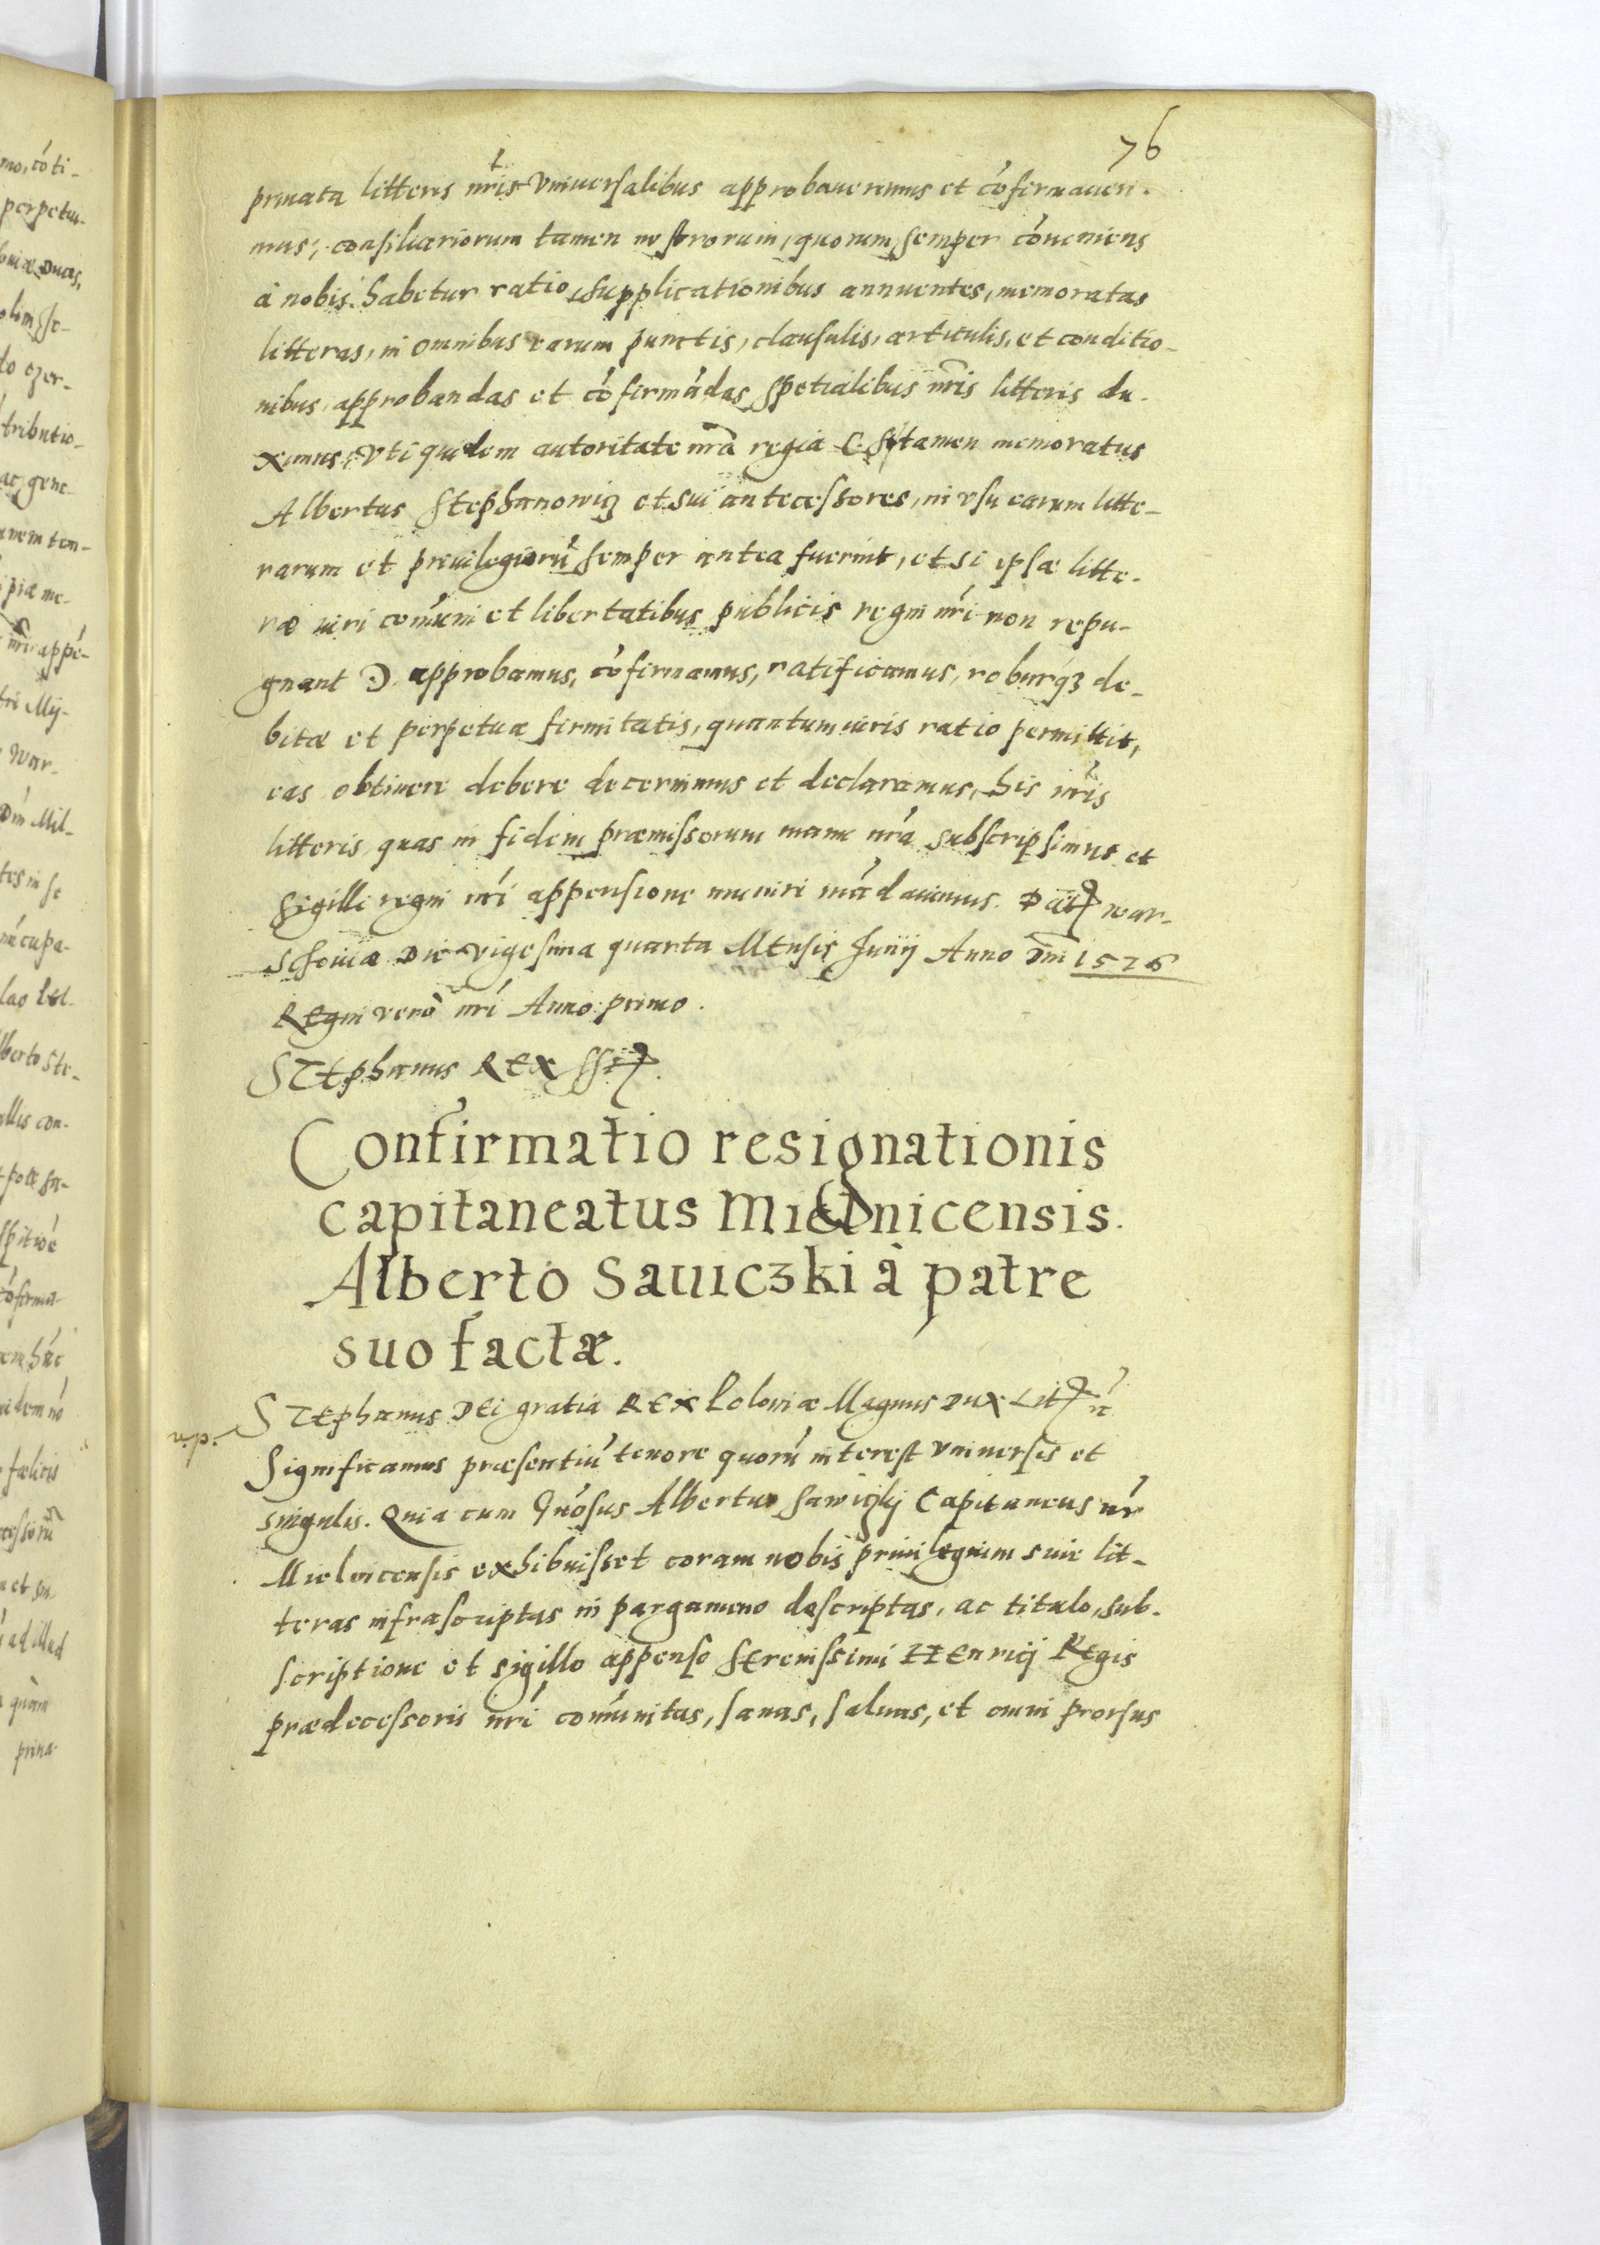 76
priuata litteris nr̃is vniuersalibus approbauerimus et cõfirmaueri-
mus; consiliariorum tamen nostrorum, quorum semper cõueniens
à nobis habetur ratio, supplicationibus annuentes, memoratas
litteras, in omnibus earum punctis, clausulis, articulis, et conditio-
nibus, approbandas et cõfirmãdas spetialibus nr̃is litteris du-
ximus, vti quidem autoritate nr̃a regia C. Si tamen memoratus
Albertus Stephanowiz et sui antecessores, in vsu earum litte-
rarum et priuilegiorũ semper antea fuerint, et si ipsæ litte-
ræ iuri comũni et libertatibus publicis regni nr̃i non repu-
gnant Ɔ. approbamus, cõfirmamus, ratificamus, roburq3 de-
bitæ et perpetuæ firmitatis, quantum iuris ratio permittit,
eas obtinere debere decernimus et declaramus, his nr̃is
litteris, quas in fidem præmissorum manu nr̃a subscripsimus et
sigilli regni nr̃i appensione muniri mãdauimus. Dat war-
schouiæ Die vigesima quarta Mensis Junij Anno Dnĩ 1576
Regni verò nr̃i Anno primo.
Stephanus Rex sst.
Confirmatio resignationis
capitaneatus Mielnicensis.
Alberto Sauiczki à patre
suo factæ.
Stephanus Dei gratia Rex Poloniæ Magnus Dux Lit
Significamus præsentiũ tenore quorũ interest vniuersis et
singulis. Quia cum Gñosus Albertus Sawiczkj Capitaneus nr̃
Mielnicensis exhibuisset coram nobis priuilegium siue lit-
teras infrascriptas in pargameno descriptas, ac titulo, sub-
scriptione et sigillo appenso Serenissimi Henricj Regis
prædecessoris nr̃i comũnitas, sanas, saluas, et omni prorsus